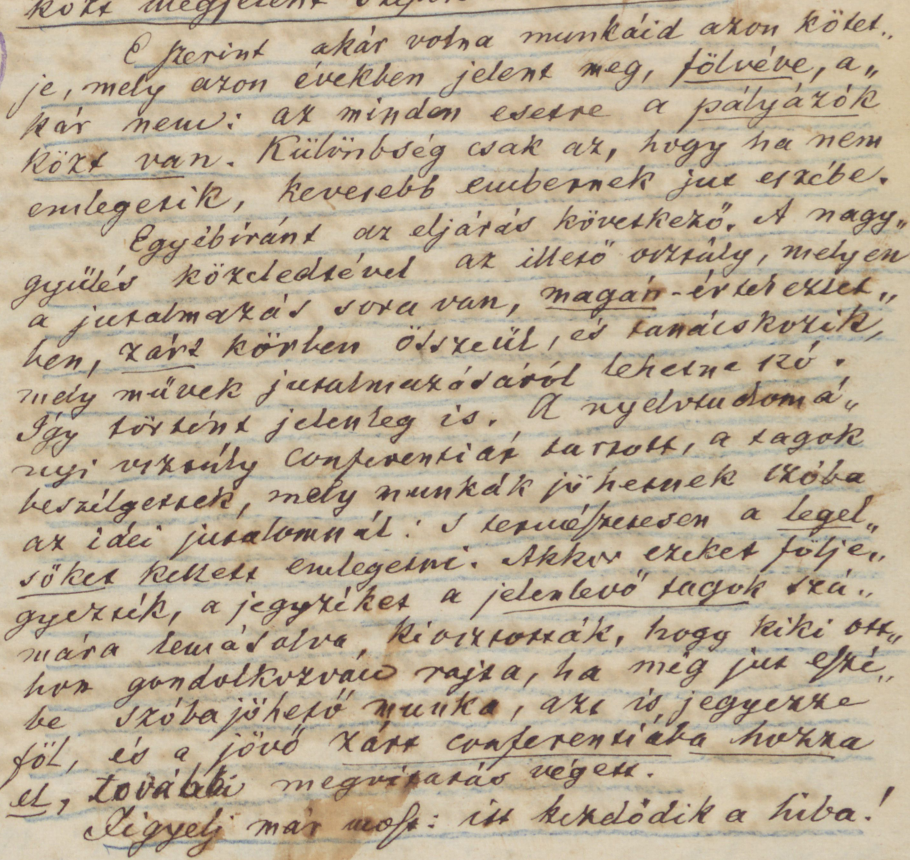 közt megjelent
E szerint akár volna munkáid azon kötet„
je, mely azon években jelent meg, fölvéve, a„
kár nem: az minden esetre a pályázók
közt van. Különbség csak az, hogy ha nem
emlegetik, kevesebb embernek jut eszébe.
Egyébiránt az eljárás következő. A nagy„
gyűlés közeledtével az illető osztály, melyen
a jutalmazás sora van, magán-értekezlet„
ben, zárt körben összeül, és tanácskozik,
mely művek jutalmazásáról lehetne szó.
Így történt jelenleg is. A nyelvtudomá„
nyi osztály conferentiát tartott, a tagok
beszélgettek, mely munkák jöhetnek szóba
az idei jutalomnál: s természetesen a legel„
sőket kellett emlegetni. Akkor ezeket följe„
gyezték, a jegyzéket a jelenlevő tagok szá„
mára lemásolva, kiosztották, hogy kiki ott„
hon gondolkozván rajta, ha még jut eszé„
be szóba jöhető munka, azt is jegyezze
föl, és a jövő zárt conferentiába hozza
el, további megvitatás végett.
Figyelj már most: itt kezdődik a hiba!